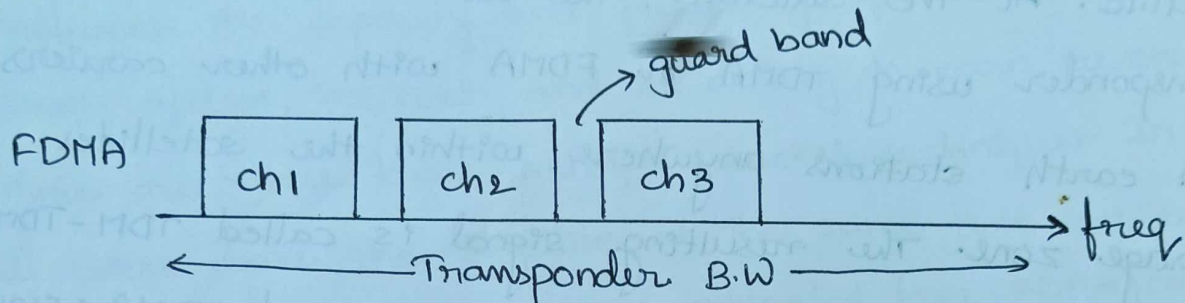 guard band
FDMA
ch1 ch2 ch3
freq
Transponder B.W